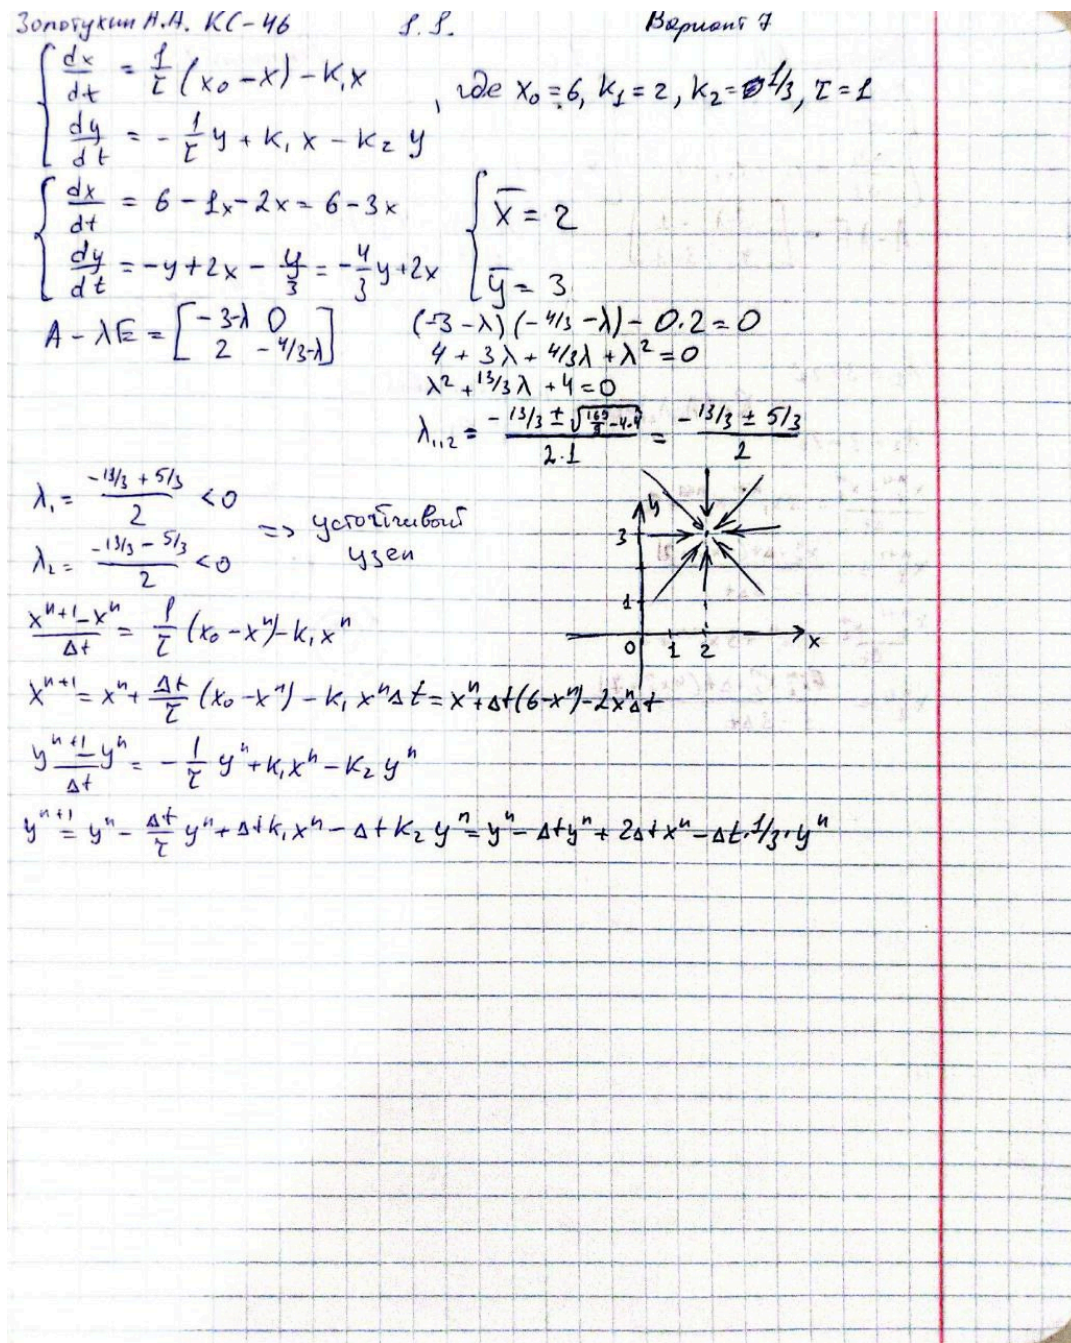 Золотухин А.А. КС-46 1.1. Вариант 7
{ dx/dt = 1/τ (x₀ - x) - k₁x
{ dy/dt = - 1/τ y + k₁x - k₂y , где x₀ = 6, k₁ = 2, k₂ = 1/3, τ = 1
{ dx/dt = 6 - 1x - 2x = 6 - 3x { x̄ = 2
{ dy/dt = -y + 2x - y/3 = -4/3 y + 2x { ȳ = 3
A - λE = [ -3-λ 0 ; 2 -4/3-λ ] (-3 - λ)(-4/3 - λ) - 0·2 = 0
4 + 3λ + 4/3λ + λ² = 0
λ² + 13/3λ + 4 = 0
λ₁,₂ = (-13/3 ± √(169/9 - 4·4)) / (2·1) = (-13/3 ± 5/3) / 2
λ₁ = (-13/3 + 5/3) / 2 < 0
λ₂ = (-13/3 - 5/3) / 2 < 0 => устойчивый узел
y
3
1
0 1 2 x
(xⁿ⁺¹ - xⁿ)/Δt = 1/τ (x₀ - xⁿ) - k₁xⁿ
xⁿ⁺¹ = xⁿ + Δt/τ (x₀ - xⁿ) - k₁xⁿΔt = xⁿ + Δt(6 - xⁿ) - 2xⁿΔt
(yⁿ⁺¹ - yⁿ)/Δt = - 1/τ yⁿ + k₁xⁿ - k₂yⁿ
yⁿ⁺¹ = yⁿ - Δt/τ yⁿ + Δtk₁xⁿ - Δtk₂yⁿ = yⁿ - Δtyⁿ + 2Δtxⁿ - Δt·1/3·yⁿ